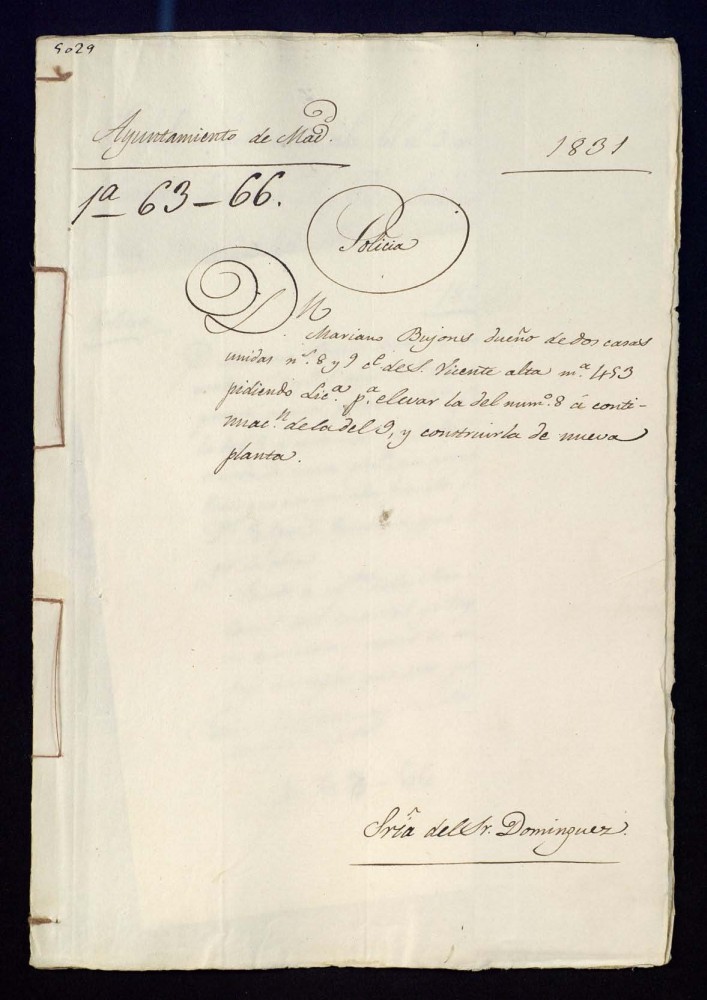 5029
Ayuntamiento de Mad.d
1831
1ª 63-66.
Policia
D.n
Mariano Bujons dueño de dos casas
unidas n.s 8 y 9 c.e de S. Vicente alta m.a 453
pidiendo Lic.a p.a elevar la del num.o 8 á conti-
nuac.n de la del 9, y construirla de nueva
planta.
Sría del Sr. Dominguez.